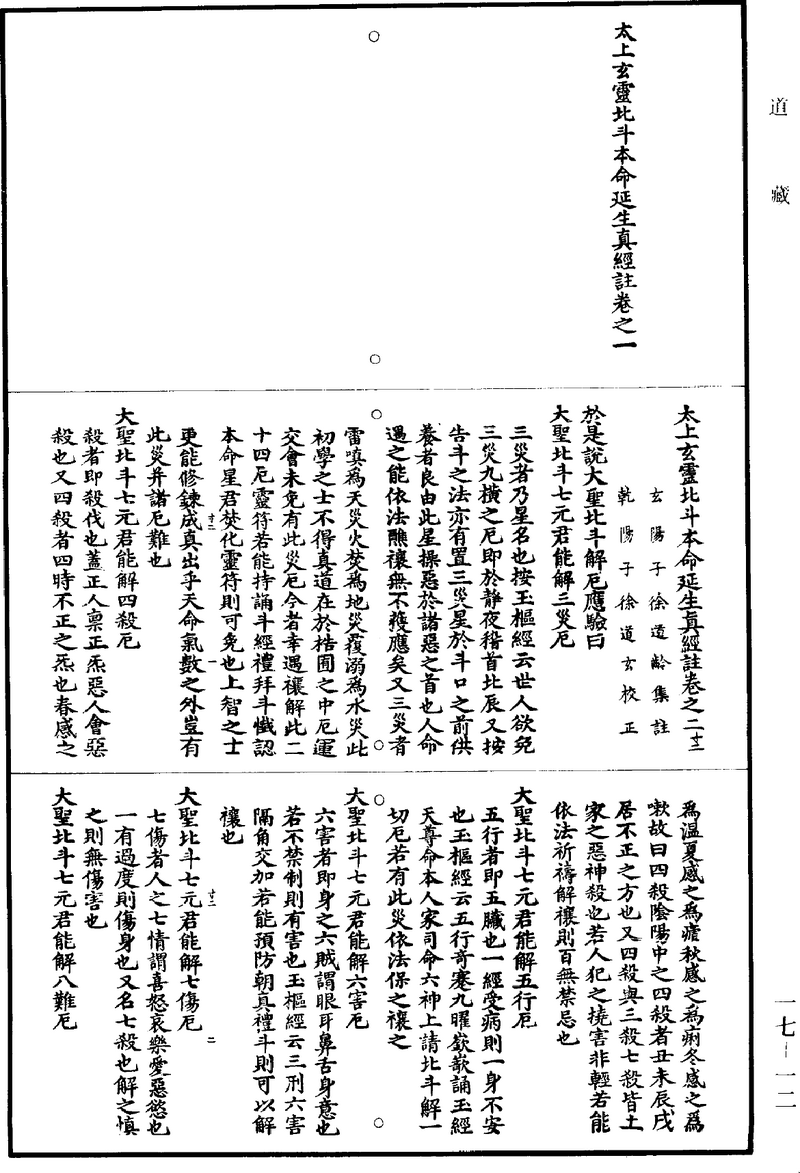 道藏
太上玄靈北斗本命延生真經註卷之一
太上玄靈北斗本命延生真經註卷之二 寸二
玄陽子徐道齡集註
乾陽子徐道玄校正
於是說大聖北斗解厄應驗曰
大聖北斗七元君能解三災厄
三災者乃星名也按玉樞經云世人欲免
三災九橫之厄即於靜夜稽首北辰又按
告斗之法亦有置三災星於斗口之前供
養者良由此星操惡於諸惡之首也人命
遇之能依法醮禳無不獲應矣又三災者
雷嗔為天災火焚為地災覆溺為水災此
初學之士不得真道在於梏囿之中厄運
交會未免有此災厄今者幸遇禳解此二
十四厄靈符若能持誦斗經禮拜斗懺認
本命星君焚化靈符則可免也上智之士
寸二 一
更能修鍊成真出乎天命氣數之外豈有
此災并諸厄難也
大聖北斗七元君能解四殺厄
殺者即殺伐也蓋正人稟正炁惡人會惡
殺也又四殺者四時不正之炁也春感之
為溫夏感之為瘧秋感之為痢冬感之為
嗽故曰四殺陰陽中之四殺者丑未辰戌
居不正之方也又四殺與三殺七殺皆土
家之惡神殺也若人犯之撓害非輕若能
依法祈禱解禳則百無禁忌也
大聖北斗七元君能解五行厄
五行者即五臟也一經受病則一身不安
也玉樞經云五行奇蹇九曜嶔嶔誦玉經
天尊命本人家司命六神上請北斗解一
切厄若有此災依法保之禳之
大聖北斗七元君能解六害厄
六害者即身之六賊謂眼耳鼻舌身意也
若不禁制則有害也玉樞經云三刑六害
隔角交加若能預防朝真禮斗則可以解
禳也
寸二 二
大聖北斗七元君能解七傷厄
七傷者人之七情謂喜怒哀樂愛惡慾也
一有過度則傷身也又名七殺也解之慎
之則無傷害也
大聖北斗七元君能解八難厄
一七—一二